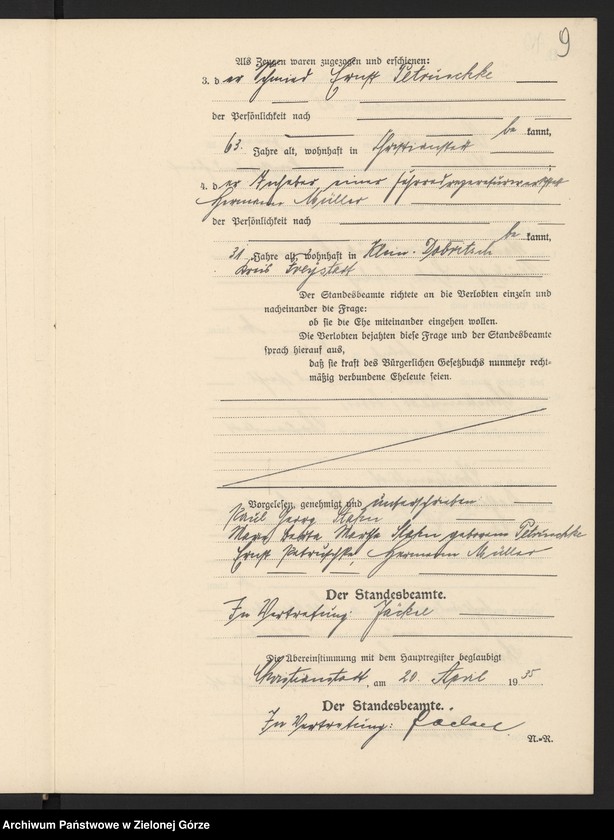 9
Als Zeugen waren zugezogen und erschienen:
3. der Schmied Ernst Petruschke
der Persönlichkeit nach
bekannt,
63 Jahre alt, wohnhaft in Christianstadt
;
4. der Inhaber einer Fahrradreparaturwerkstatt
Hermann Müller
der Persönlichkeit nach
bekannt,
31 Jahre alt, wohnhaft in Klein-Dobritsch
Kreis Freystadt
Der Standesbeamte richtete an die Verlobten einzeln und
nacheinander die Frage:
ob sie die Ehe miteinander eingehen wollen.
Die Verlobten bejahten diese Frage und der Standesbeamte
sprach hierauf aus,
daß sie kraft des Bürgerlichen Gesetzbuchs nunmehr recht-
mäßig verbundene Eheleute seien.
Vorgelesen, genehmigt und unterschrieben
Paul Georg
Martha geborene Petruschke
Ernst Petruschke, Hermann Müller
Der Standesbeamte.
In Vertretung: Jäckel
Die Übereinstimmung mit dem Hauptregister beglaubigt
Christianstadt, am 20. April 1935.
Der Standesbeamte.
In Vertretung:
N.-R.
Archiwum Państwowe w Zielonej Górze